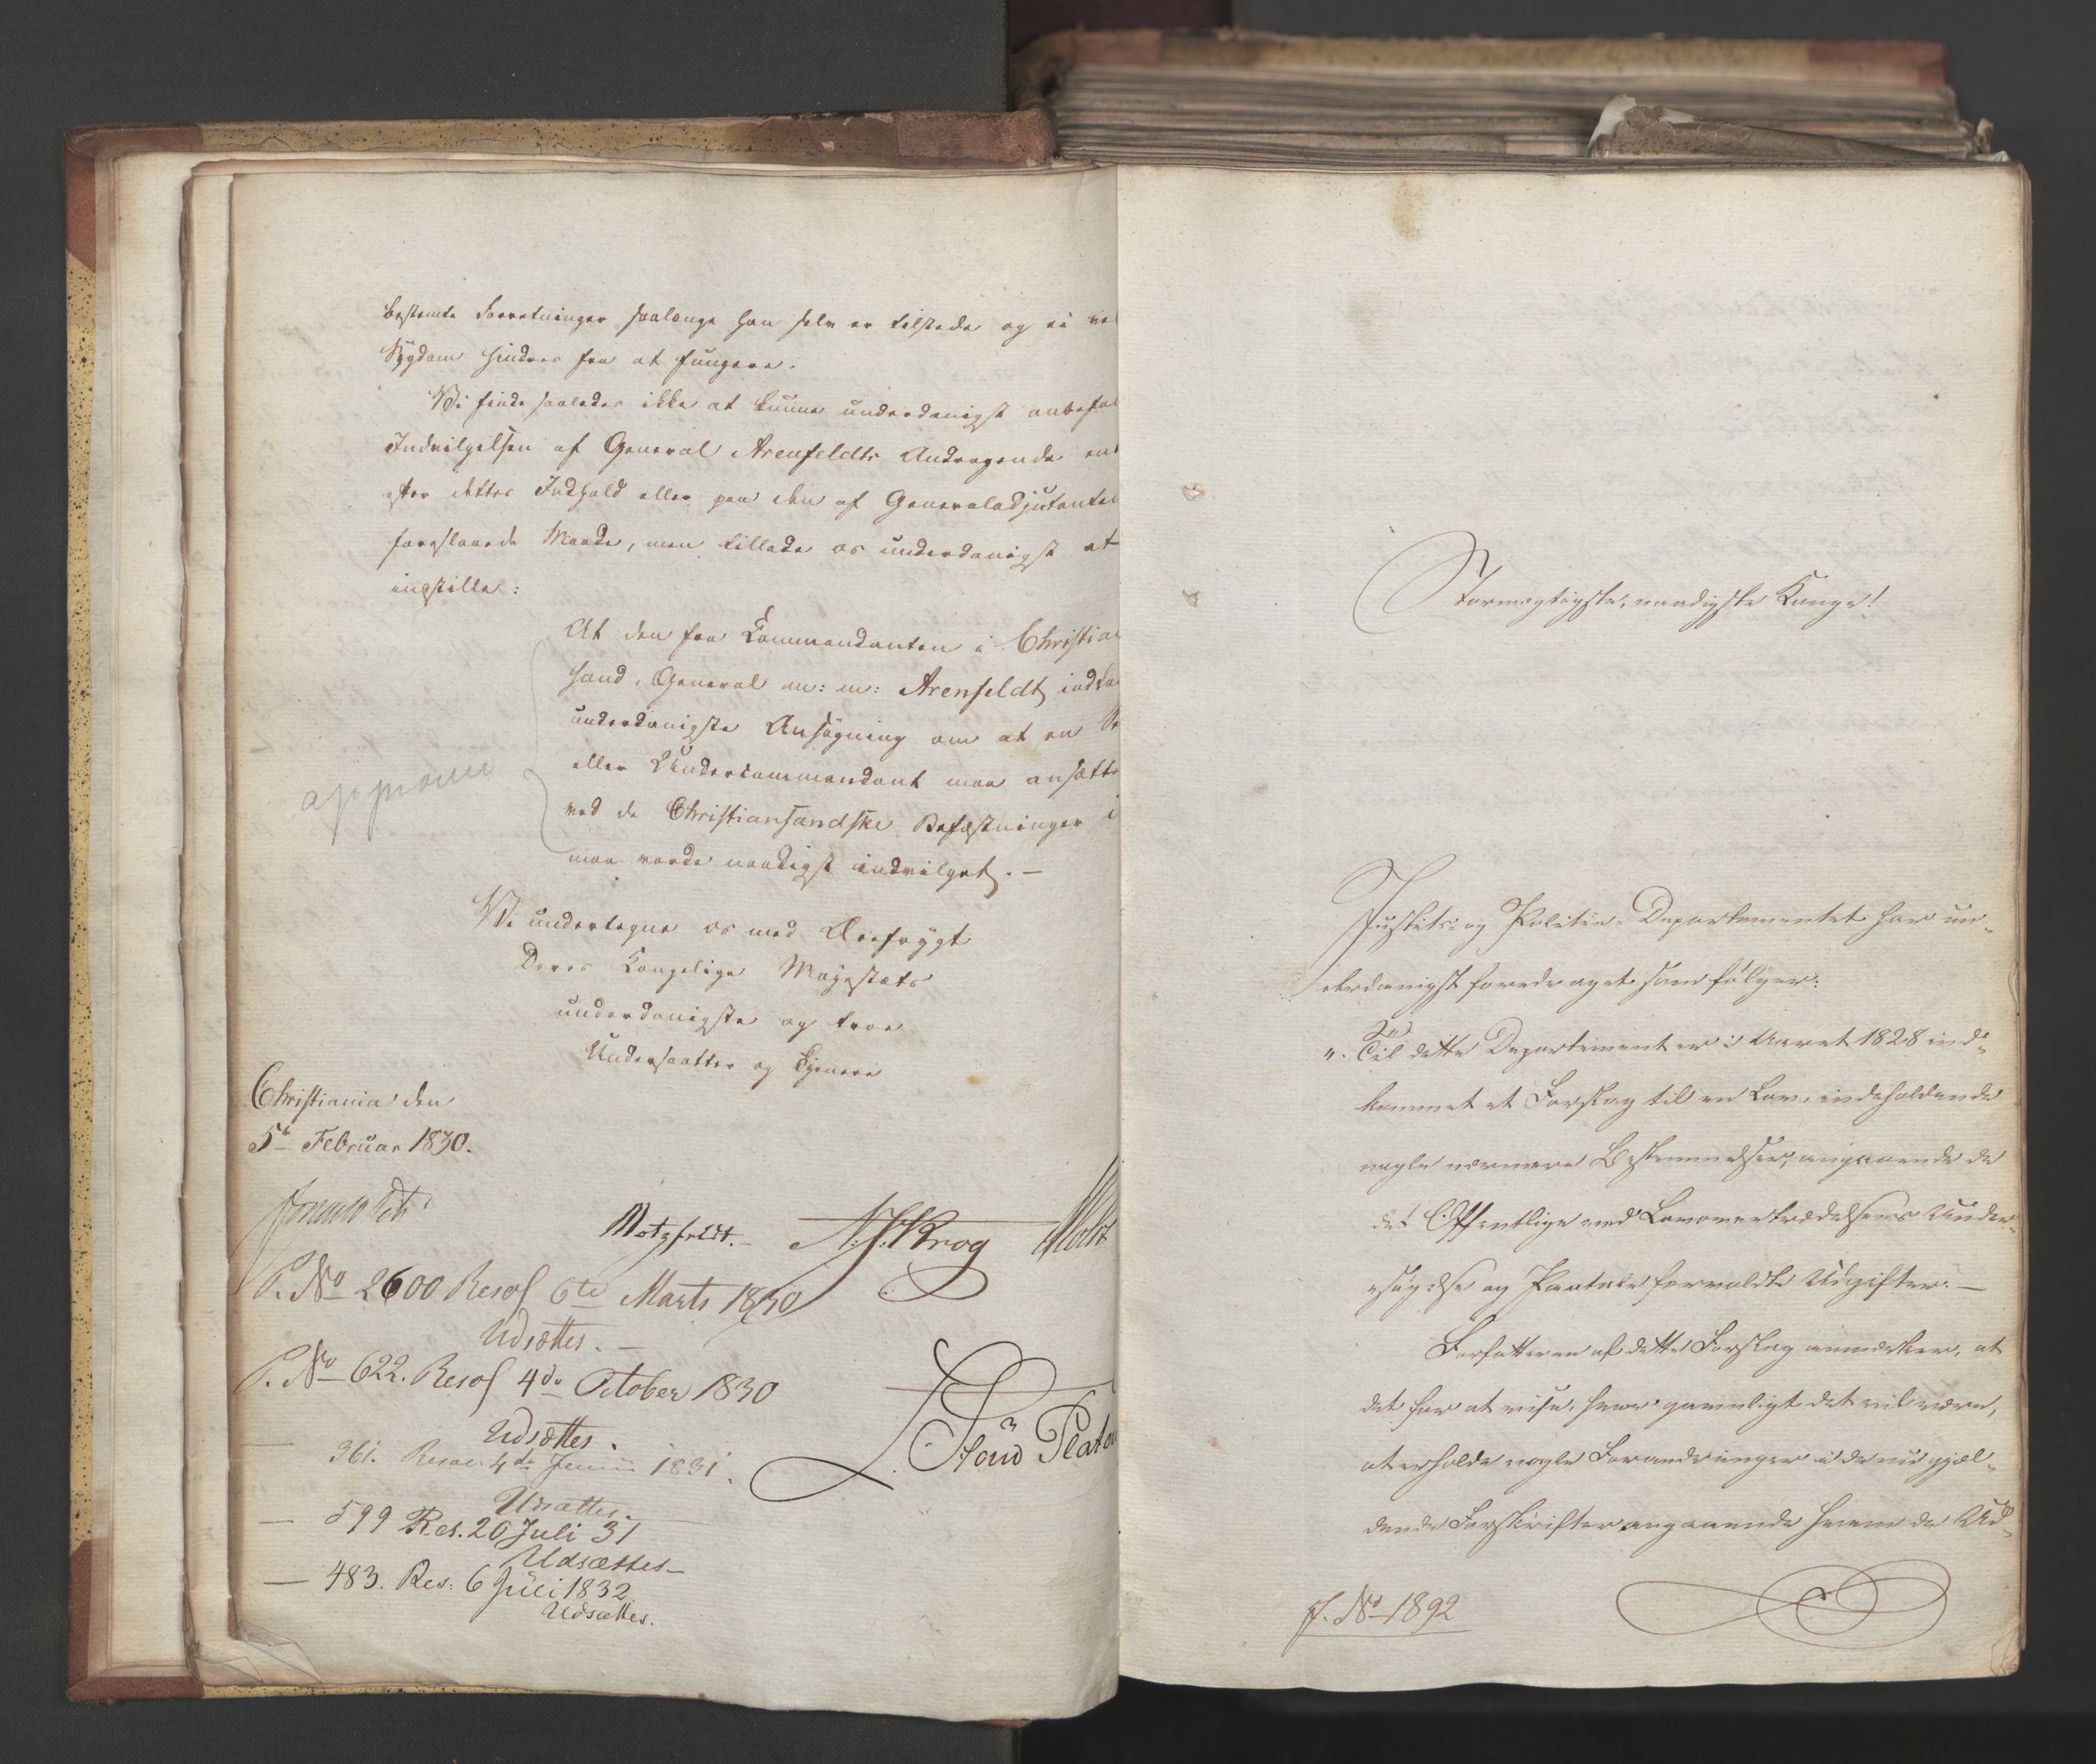 bestemte Forretninger saalænge han selv er tilstede og ei ve
Sygdom hindres fra at fungere.
Vi finde saaledes ikke at kunne underdanigst anbefal
Indvilgelsen af General Arenfeldts Andragende ent
efter dettes Indhold eller paa den af Generaladjutanten
foreslaaede Maade, men tillade os underdanigst at
indstille:
At den fra Commandanten i Christian
sand, General m: m: Arenfeldt indko
underdanigste Ansøgning om at en
eller Undercommandant maa ansætte
ved de Christiansandske Befæstninger i
maa vorde naadigst indvilget. —
approuv
Vi undertegne os med Ærefrygt
Deres Kongelige Majestæts
underdanigste og troe
Undersaatter og Tjenere
Christiania den
5te Februar 1830.
Motzfeldt. N. J. Krog Holst
P. No 2600 Resol 6te Marts 1830
Udsættes. —
P. No 622. Resol 4de October 1830
Udsættes.
— 361. Resol. 4de Junii 1831.
Udsættes.
— 599 Res. 20 Juli 31
Udsættes —
— 483. Res: 6 Juli 1832
Udsættes.
Stormægtigste, naadigste Konge!
Justits- og Politie-Departementet har un-
derdanigst foredraget som følger:
". Til dette Departement er i Aaret 1828 ind-
kommet et Forslag til en Lov, indeholdende
nogle nærmere Bestemmelser, angaaende de
det Offentlige ved Lovovertrædelsers Under-
søgelse og Paatale forvoldte Udgifter. —
Forfatteren af dette Forslag anmærker, at
det for at vise, hvor gavnligt det vil være,
at erholde nogle Forandringer i de nu gjæl-
dende Forskrifter angaaende hvem de Ud-
J. No 1892